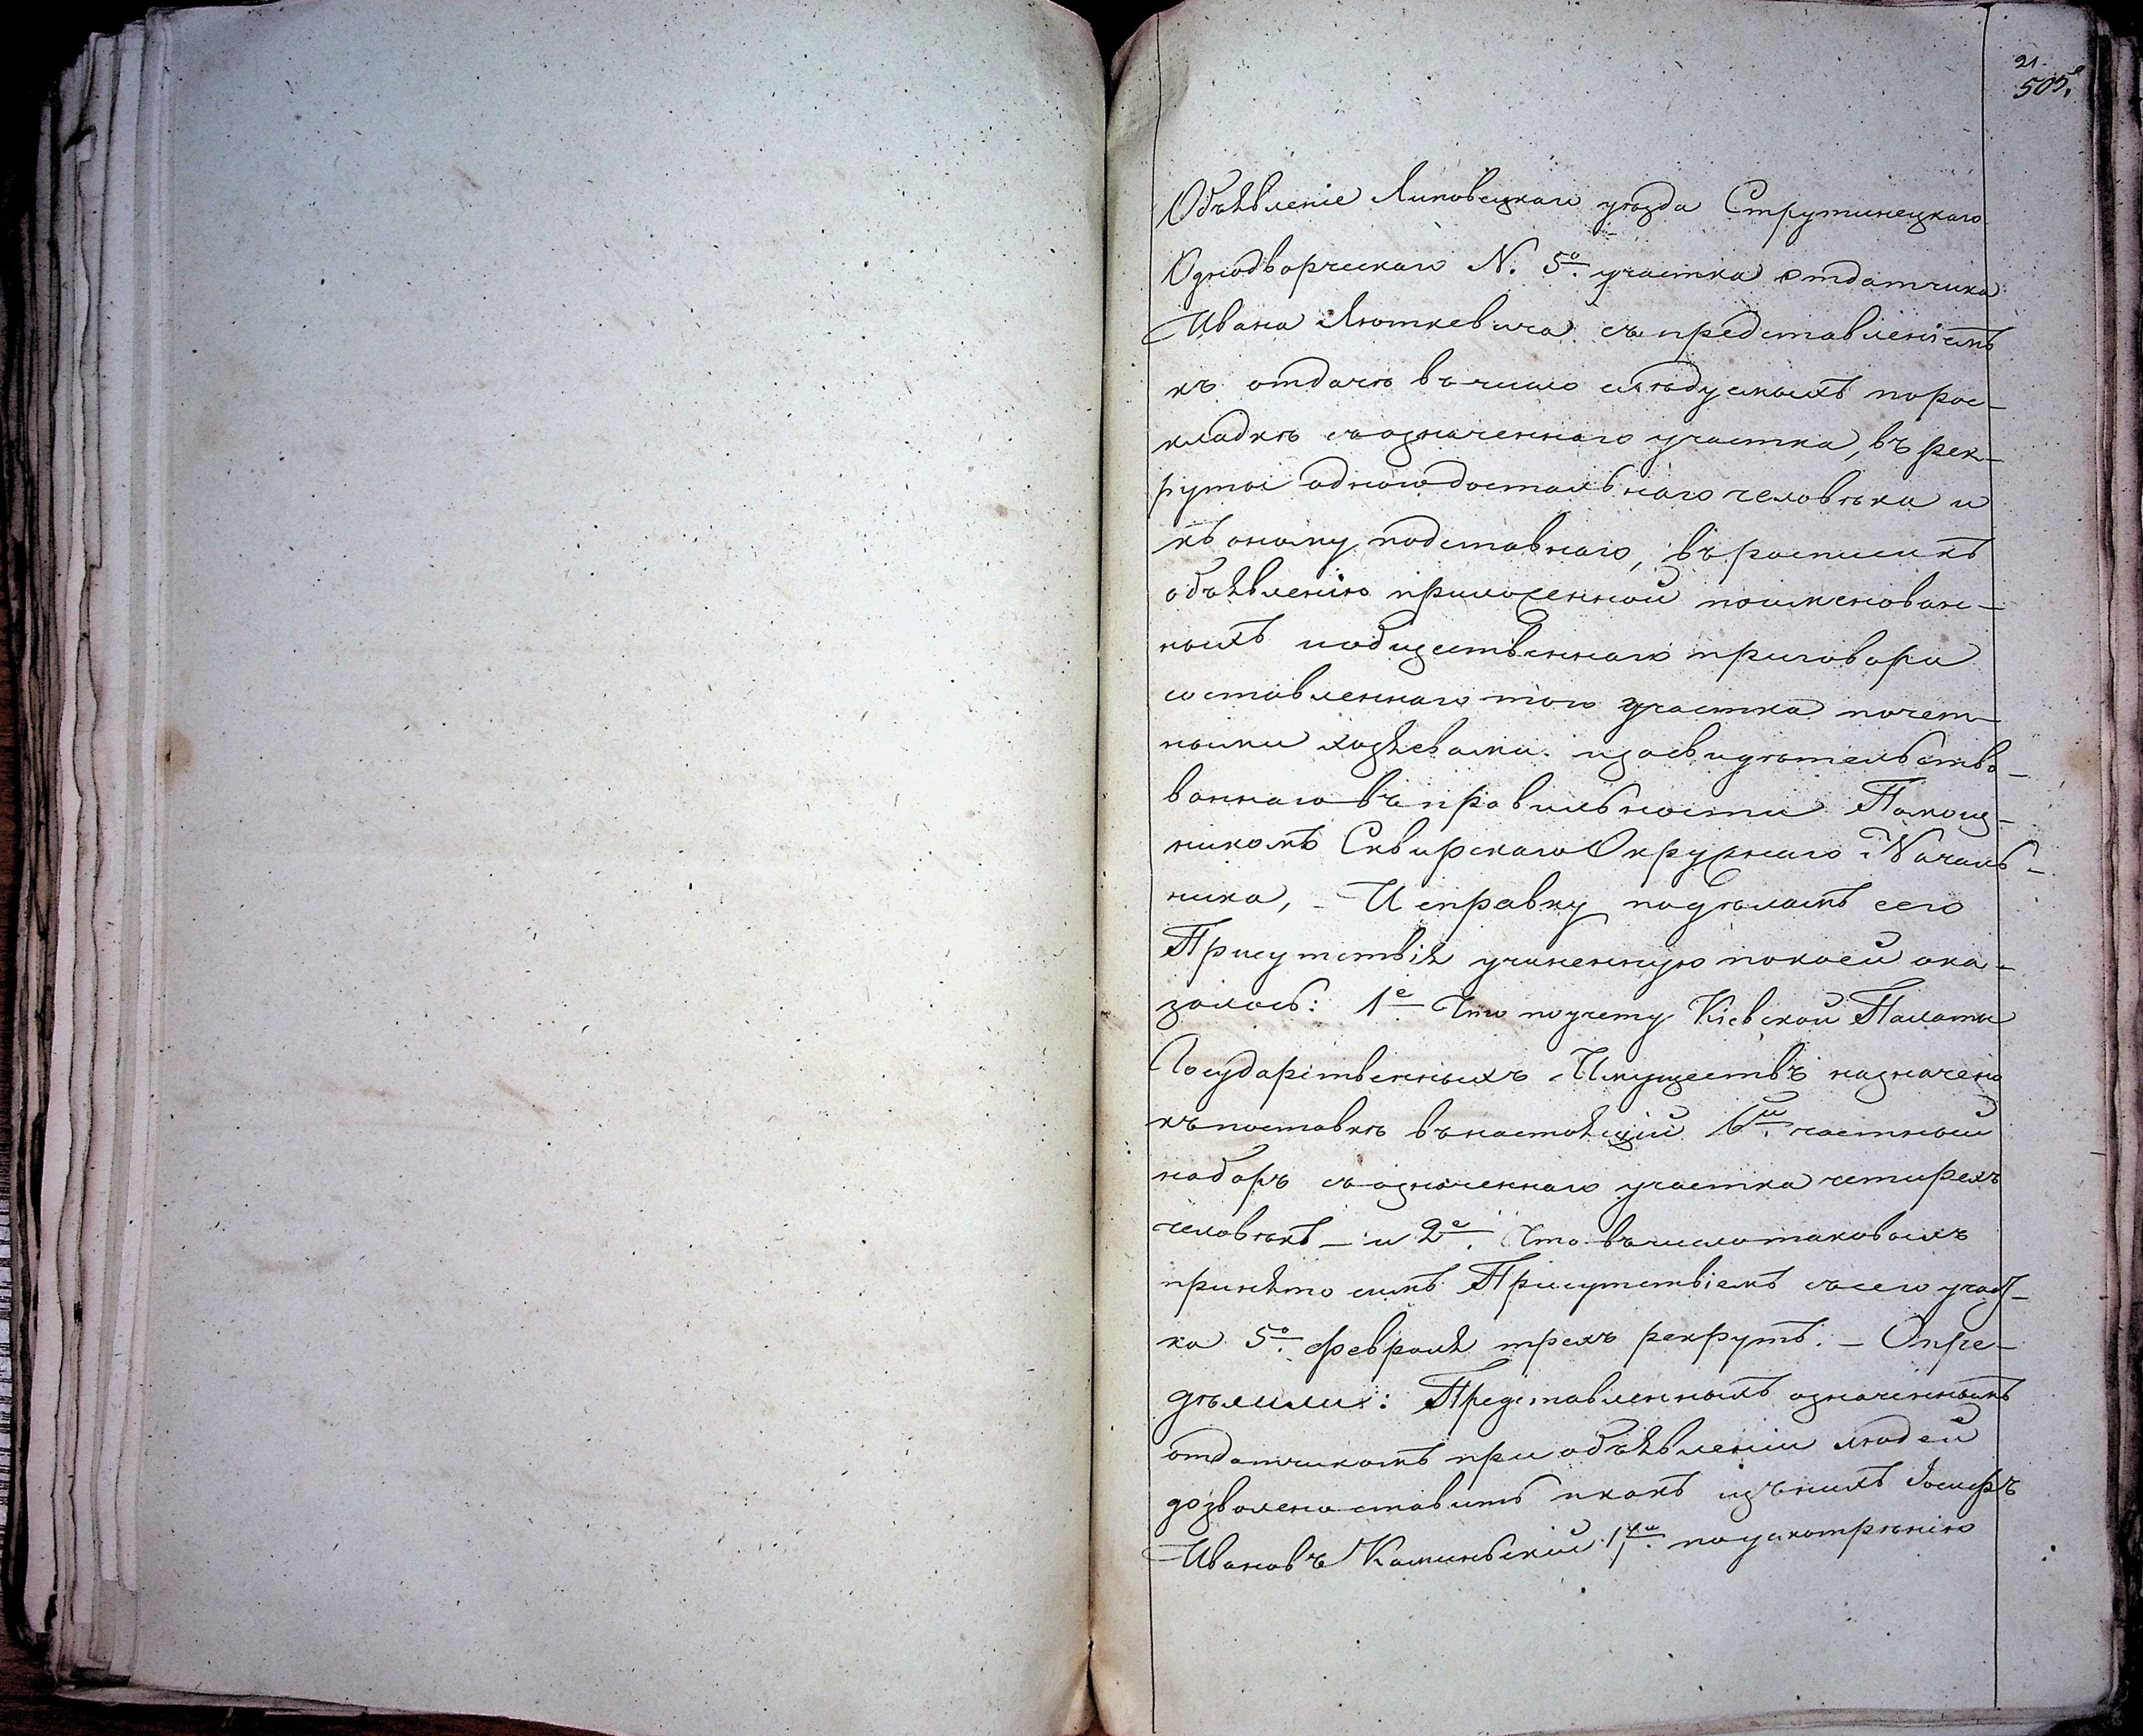 21.
505.
Объявленіе Липовецкаго уѣзда Струтинецкаго
Однодворческаго N. 5º участка отдатчика
Ивана Люткевича съ представленіемъ
къ отдачѣ въ число слѣдуемыхъ по рас-
кладкѣ съ означеннаго участка, въ рек-
руты одного достальнаго человѣка и
къ оному подставнаго, въ росписи къ
объявленію приложенной поименован-
ныхъ и общественнаго приговора
составленнаго того участка почет-
ными хозяевами. и засвидѣтельство-
ваннаго въ правильности Помощ-
никомъ Сквирскаго Окружнаго Началь-
ника, - И справку по дѣламъ сего
Присутствія учиненную по коей ока-
залось: 1е Что по учету Кіевской Палаты
Государственныхъ Имуществъ назначено
къ поставкѣ въ настоящій 6й частный
наборъ съ означеннаго участка четырехъ
человѣкъ - и 2е. Что въ число таковыхъ
принято симъ Присутствіемъ съ сего участ-
ка 5º февраля трехъ рекрутъ. - Опре-
дѣлили: Представленныхъ означеннымъ
отдатчикомъ при объявленіи людей
дозволено ставить и какъ изъ нихъ Іосифъ
Ивановъ Каминьскій 1й по усмотрѣнію